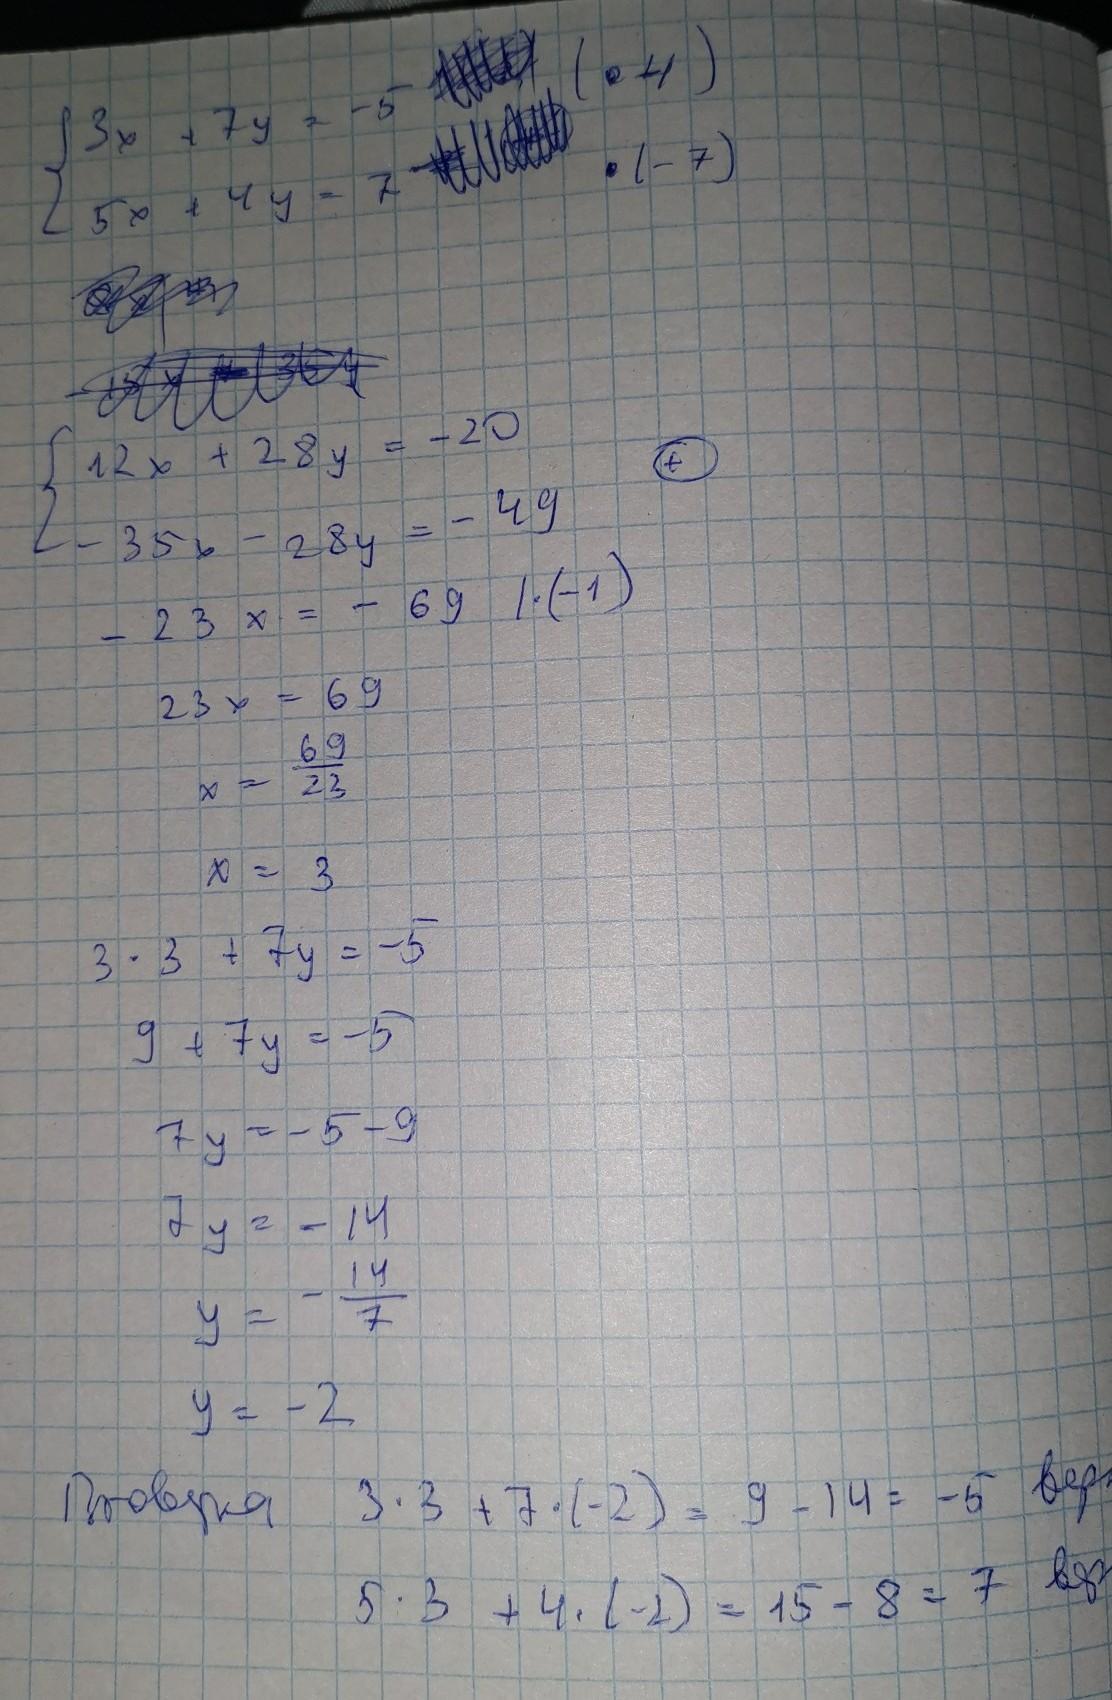 { 3x + 7y = -5 (· 4)
5x + 4y = 7 · (-7)
{ 12x + 28y = -20 (+)
-35x - 28y = -49
-23x = -69 |·(-1)
23x = 69
x = 69/23
x = 3
3·3 + 7y = -5
9 + 7y = -5
7y = -5-9
7y = -14
y = -14/7
y = -2
Проверка 3·3 + 7·(-2) = 9 - 14 = -5
5·3 + 4·(-2) = 15 - 8 = 7